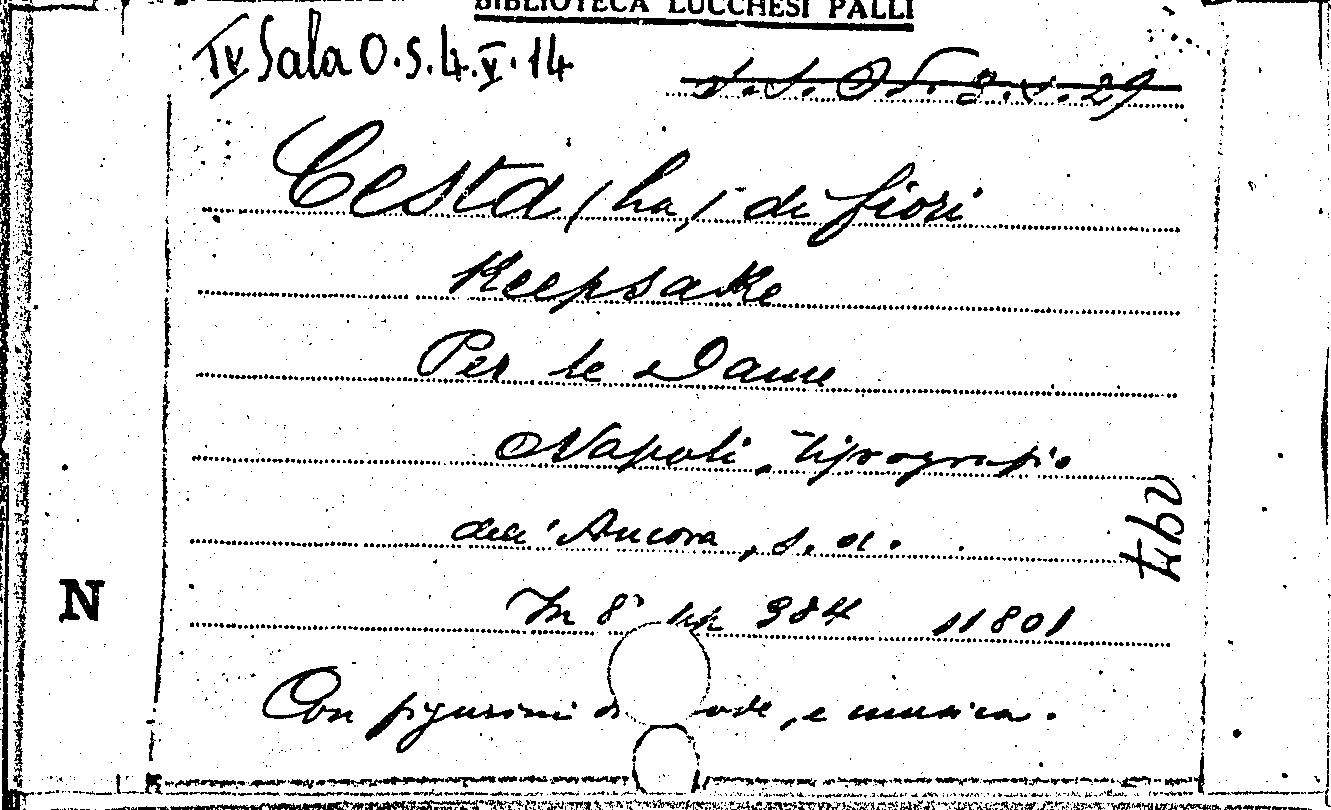 BIBLIOTECA LUCCHESI PALLI
IV Sala O.S.4.V.14
Cesta (La) di fiori
Keepsake
Per le Dame
Napoli, Tipografia
dell'Ancora, s. a.
In 8° pp 384 11801
Con figurini di mode, e musica.
N